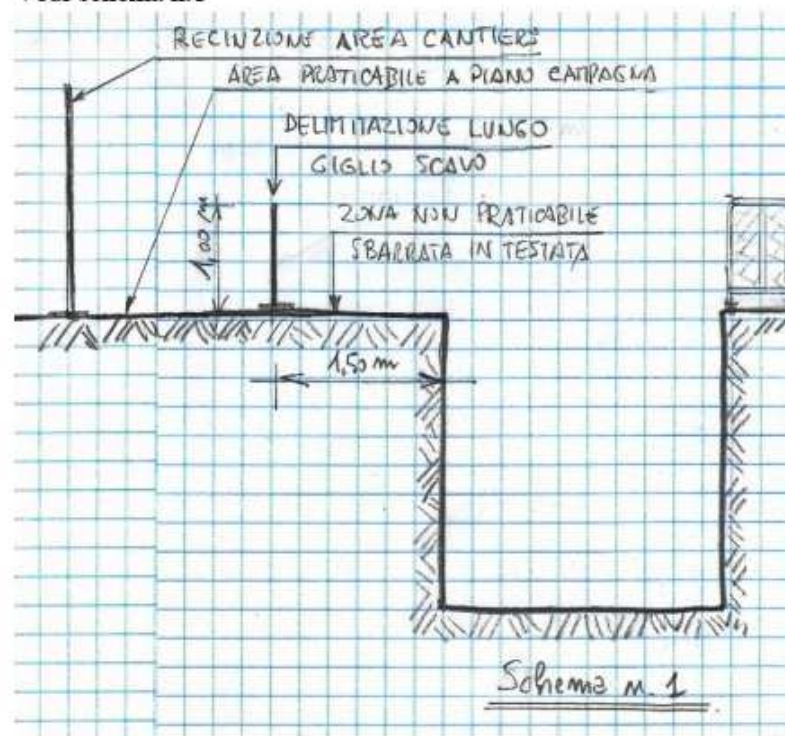 RECINZIONE AREA CANTIERE
AREA PRATICABILE A PIANO CAMPAGNA
DELIMITAZIONE LUNGO
GIGLIO SCAVO
ZONA NON PRATICABILE
SBARRATA IN TESTATA
1,00 m
1,50 m
Schema n. 1